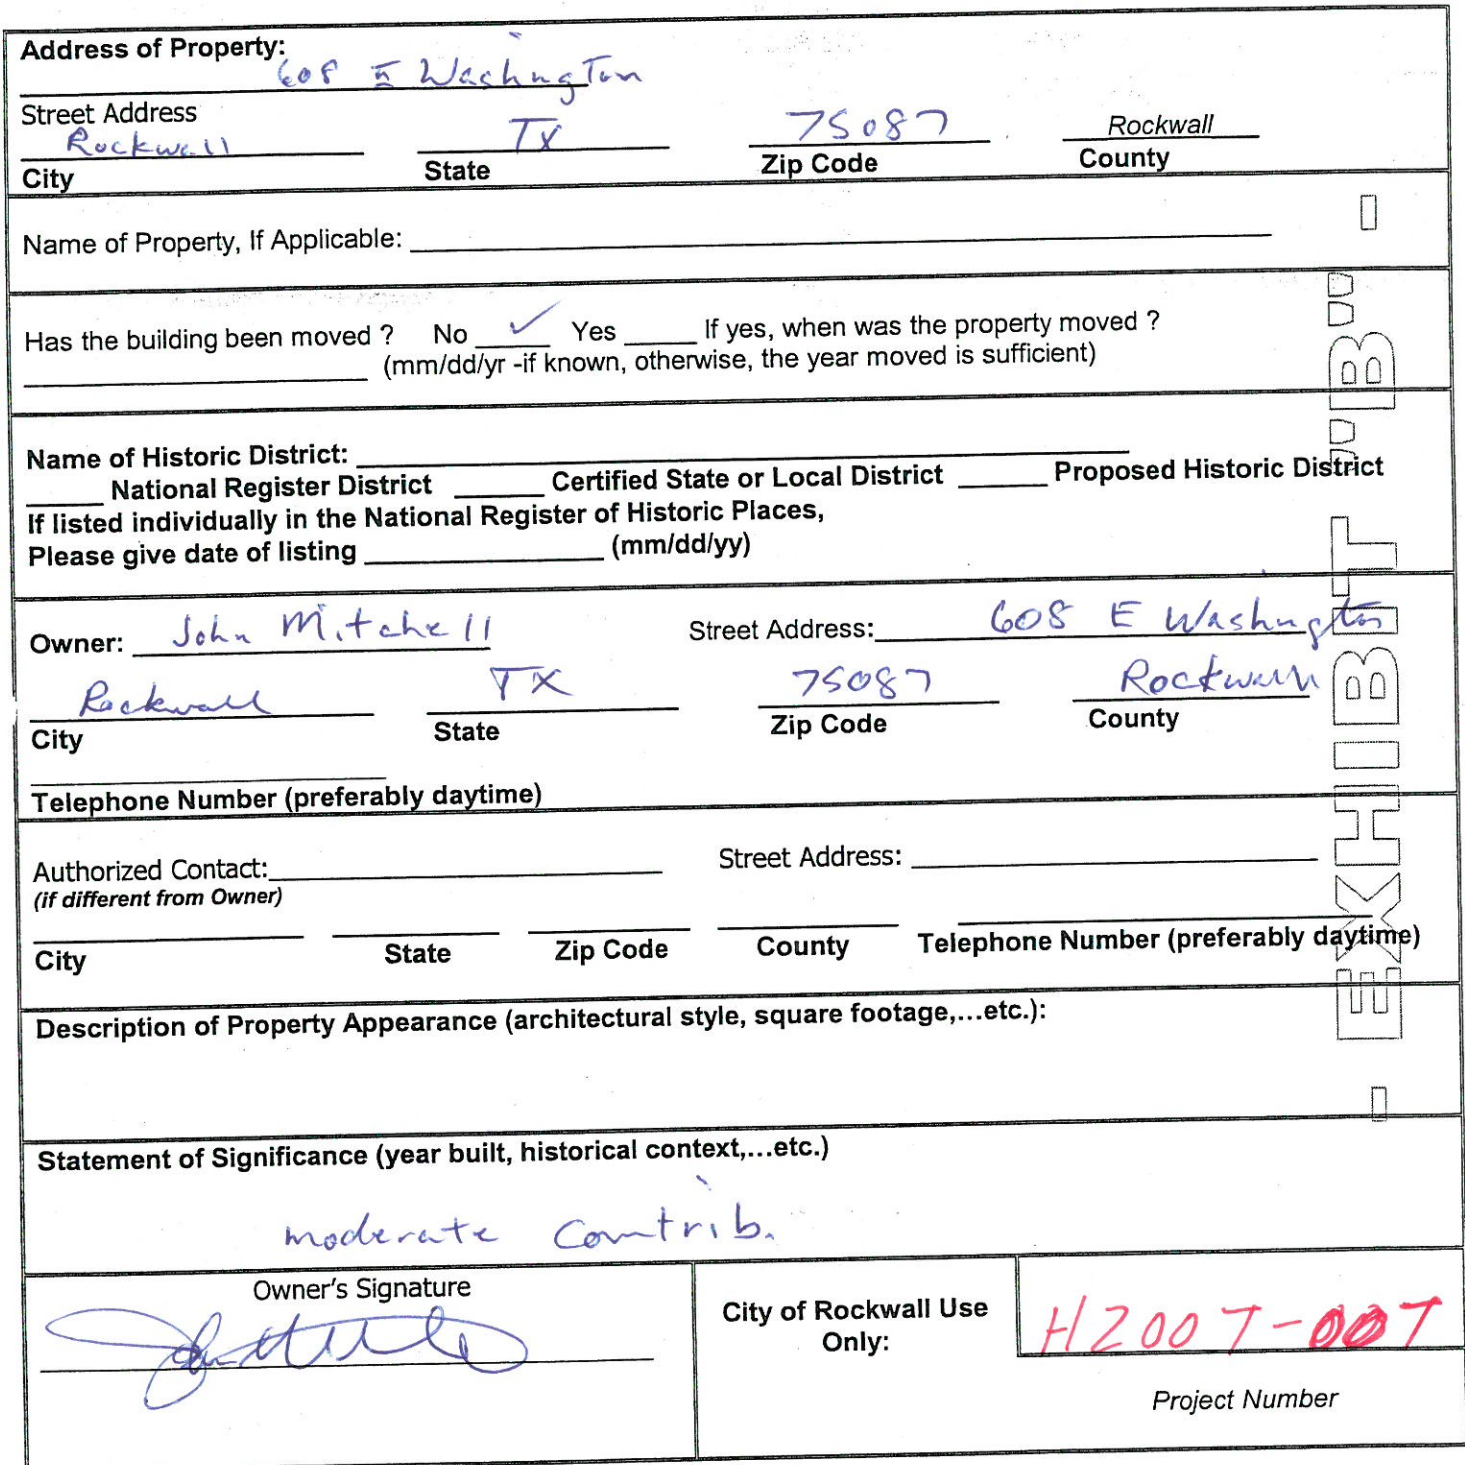 Address of Property:
608 E Washington
Street Address
Rockwall TX 75087 Rockwall
City State Zip Code County
Name of Property, If Applicable:
Has the building been moved ? No ✓ Yes If yes, when was the property moved ?
(mm/dd/yr -if known, otherwise, the year moved is sufficient)
Name of Historic District:
National Register District Certified State or Local District Proposed Historic District
If listed individually in the National Register of Historic Places,
Please give date of listing (mm/dd/yy)
Owner: John Mitchell Street Address: 608 E Washington
Rockwall TX 75087 Rockwall
City State Zip Code County
Telephone Number (preferably daytime)
Authorized Contact: Street Address:
(if different from Owner)
City State Zip Code County Telephone Number (preferably daytime)
Description of Property Appearance (architectural style, square footage,...etc.):
Statement of Significance (year built, historical context,...etc.)
moderate Contrib.
Owner's Signature
City of Rockwall Use
Only:
H2007-007
Project Number
- EXHIBIT "B" -